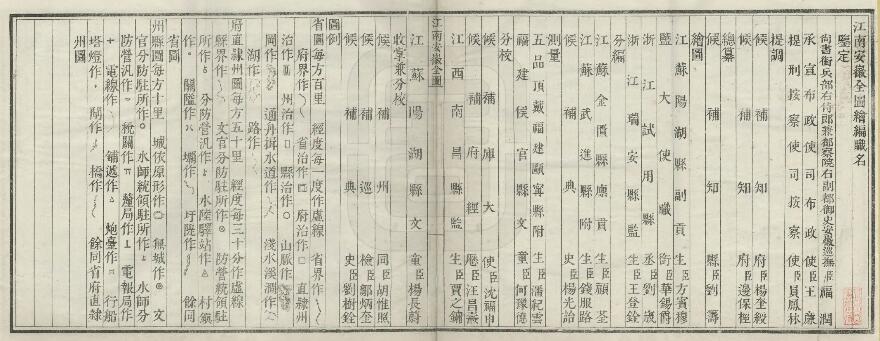 江南安徽全圖繪編職名
鑒定
尚書銜兵部右侍郎兼都察院右副都御史安徽巡撫臣福潤
承宣布政使司布政使臣王廉
提刑按察使司按察使臣員鳳林
提調
候補知府臣楊奎綬
候補知府臣邊保樫
總纂
候補知縣臣劉籌
繪圖
江蘇陽湖縣副貢生臣方賓穆
鹽大使職銜臣華錫爵
浙江試用縣丞臣劉歲
分編
浙江瑞安縣監生臣王登銓
江蘇金匱縣廩貢生臣顧荃
江蘇武進縣附生臣錢服路
候補典史臣楊光詒
測量
五品頂戴福建甌寧縣附生臣潘紀雲
福建侯官縣文童臣何豫億
分校
候補庫大使臣沈福申
候補府經歷臣汪昌燾
江西南昌縣監生臣賈之鏞
江南安徽全圖
收掌兼分校
江蘇陽湖縣文童臣楊長蔚
候補州同臣胡惟照
候補巡檢臣鄔炳奎
候補典史臣劉樹銓
圖例
省圖每方百里 經度每一度作虛線 省界作
府界作 省治作 府治作 直隸州
治作 州治作 縣治作 山脈作
岡作 通舟楫水道作 淺水溪澗作
湖作 路作
府直隸州圖每方五十里 經度每三十分作虛線
縣界作 文官分防駐所作 防營統領駐
所作 分防營汛作 水陸驛站作 村鎮
作 關鹽作 壩作 圩隄作 餘同
省圖
州縣圖每方十里 城依原形作 無城作 文
官分防駐所作 水師統領駐所作 水師分
防營汛作 稅關作 釐局作 電報局作
電線作 鋪遞作 炮臺作 行船
塔燈作 閘作 橋作 餘同省府直隸
州圖